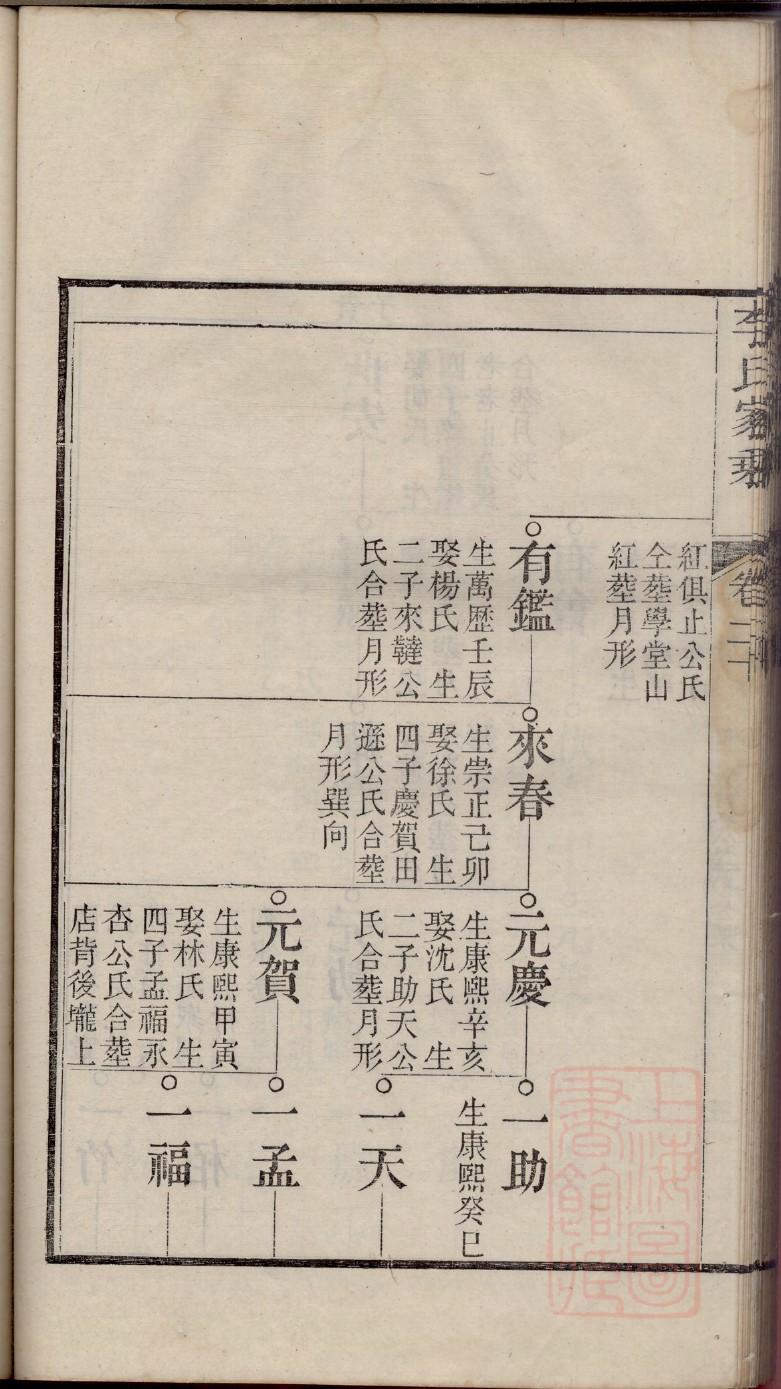 李氏家乘
卷二
紅俱止公氏
仝塟學堂山
紅塟月形
有鑑
生萬歷壬辰
娶楊氏 生
二子來韃公
氏合塟月形
來春
生崇正己卯
娶徐氏 生
四子慶賀田
遜公氏合塟
月形巽向
元慶
生康熙辛亥
娶沈氏 生
二子助天公
氏合塟月形
元賀
生康熙甲寅
娶林氏 生
四子孟福永
杏公氏合塟
店背後壠上
一助
生康熙癸巳
一天
一孟
一福
上海圖書館藏